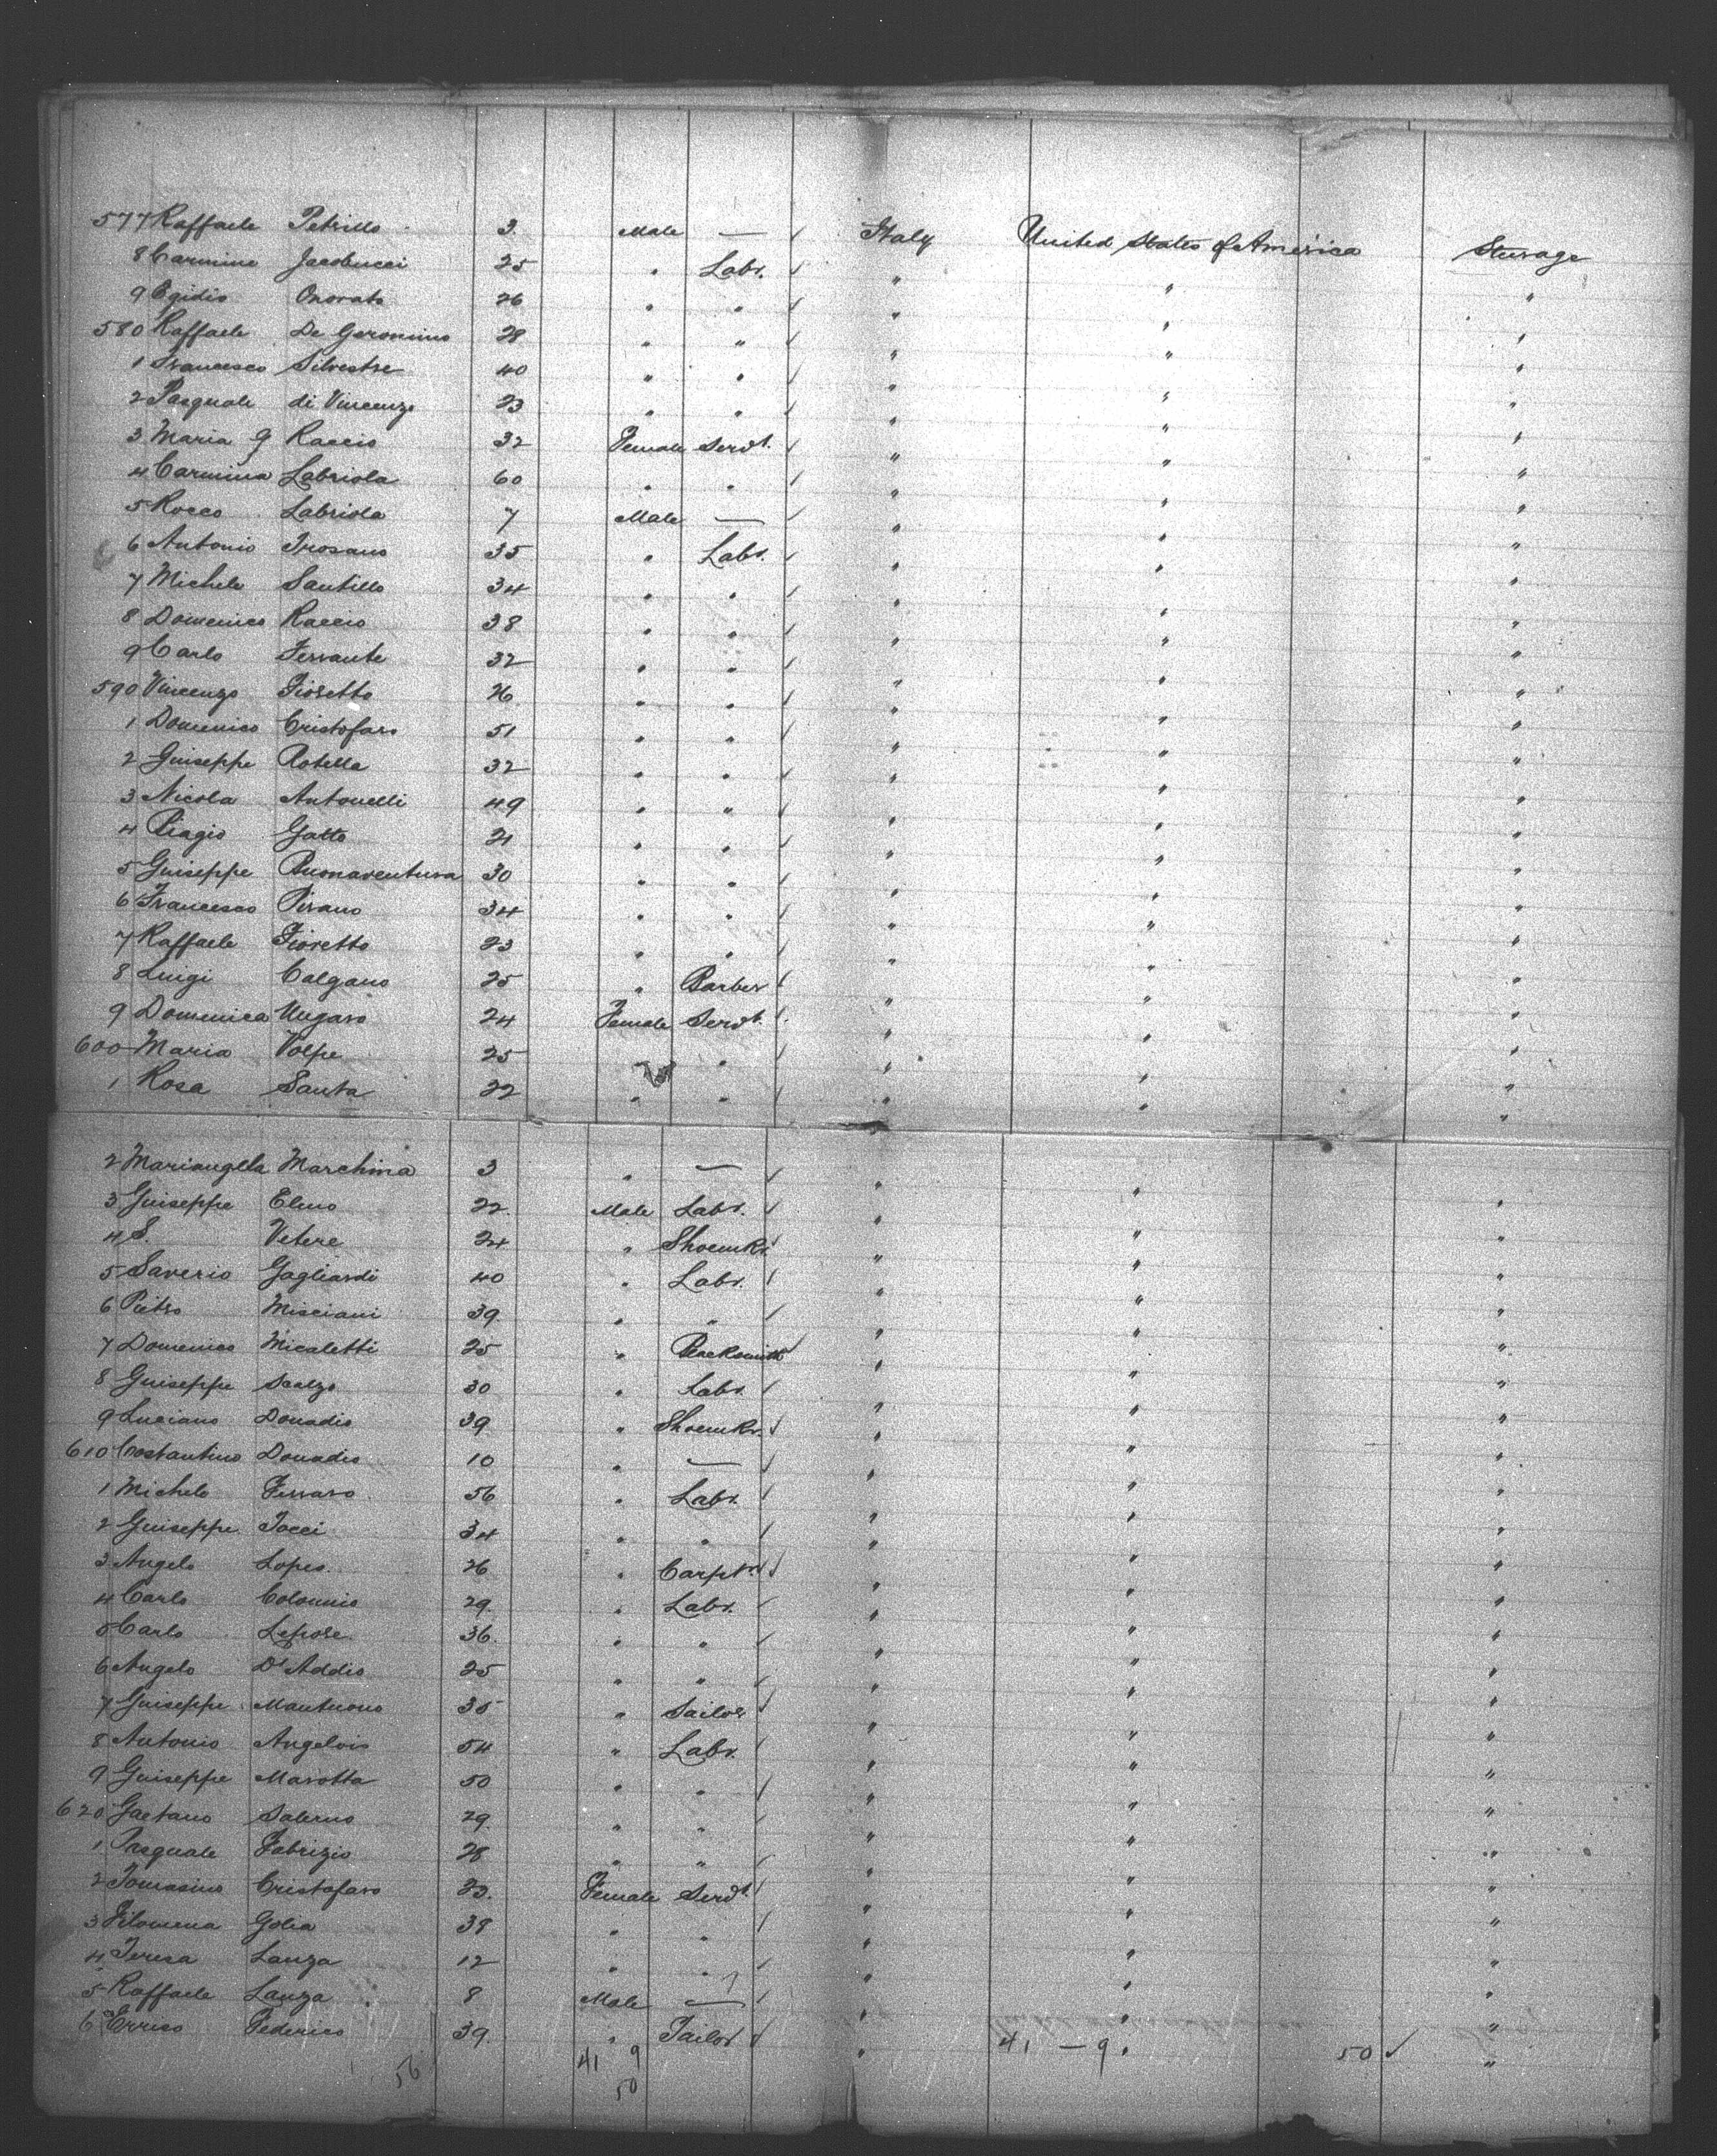 577 Raffaele Petrillo 3. Male — ✓ Italy United States of America Steerage
8 Carmine Jacobucci 25 " Labr. ✓ " " "
9 Egidio Onorato 26 " " ✓ " " "
580 Raffaele De Geronimo 28 " " ✓ " " "
1 Francesco Silvestre 40 " " ✓ " " "
2 Pasquale di Vincenzo 23 " " ✓ " " "
3 Maria G Raccio 32 Female Servt. ✓ " " "
4 Carmina Labriola 60 " " ✓ " " "
5 Rocco Labriola 7 Male — ✓ " " "
6 Antonio 35 " Labr. ✓ " " "
7 Michele Santillo 34 " " ✓ " " "
8 Domenico Raccio 38 " " ✓ " " "
9 Carlo Ferrante 32 " " ✓ " " "
590 Vincenzo Fioretto 26 " " ✓ " " "
1 Domenico Cristofaro 51 " " ✓ " " "
2 Guiseppe Rotella 32 " " ✓ " " "
3 Nicola Antonelli 49 " " ✓ " " "
4 Biagio Gatto 21 " " ✓ " " "
5 Guiseppe Buonaventura 30 " " ✓ " " "
6 Francesco Pirano 34 " " ✓ " " "
7 Raffaele Fioretto 23 " " ✓ " " "
8 Luigi Calgano 25 " Barber ✓ " " "
9 Domenica Ungaro 24 Female Servt. ✓ " " "
600 Maria Volpe 25 " " " "
1 Rosa Santa 22 " " ✓ " " "
2 Mariangela Marchina 3 " — ✓ " " "
3 Guiseppe Elmo 22. Male Labr. ✓ " " "
4 S. Vetere 24 " Shoemkr. ✓ " " "
5 Saverio Gagliardi 40 " Labr. ✓ " " "
6 Pietro Misciani 39. " " ✓ " " "
7 Domenico Micaletti 25 " Blacksmith ✓ " " "
8 Guiseppe Scalzo 30 " Labr. ✓ " " "
9 Luciano Donadio 39 " Shoemkr. ✓ " " "
610 Costantino Donadio 10 " — ✓ " " "
1 Michele Ferraro 56 " Labr. ✓ " " "
2 Guiseppe Tocci 34 " " ✓ " " "
3 Angelo Lopes. 26 " Carptr. ✓ " " "
4 Carlo Colonnio 29. " Labr. ✓ " " "
5 Carlo Lepore. 36. " " ✓ " " "
6 Angelo D'Addio 25 " " ✓ " " "
7 Guiseppe Mantuono 35 " Sailor ✓ " " "
8 Antonio 54 " Labr. ✓ " " "
9 Guiseppe Marotta 50 " " ✓ " " "
620 Gaetano Salerno 29. " " " " "
1 Pasquale Fabrizio 28 " " ✓ " " "
2 Tomasino Cristofaro 23. Female Servt. ✓ " " "
3 Filomena Golia 39 " " ✓ " " "
4 Teresa Lanza 12 " " ✓ " " "
5 Raffaele Lanza 8 Male — ✓ " " "
6 Errico Federico 39. " Tailor ✓ " " "
41 9 41 - 9 50 ✓
56 50